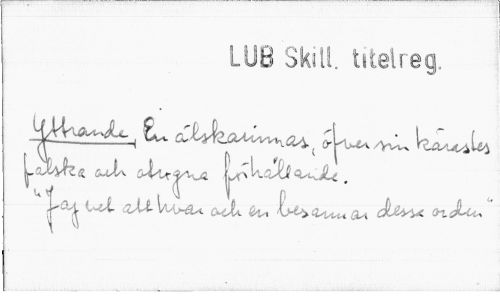 LUB Skill. titelreg.
Yttrande, En älskarinnas, öfver sin kärastes
falska och otrogna förhållande.
"Jag vet att hvar och en besannar dessa orden"